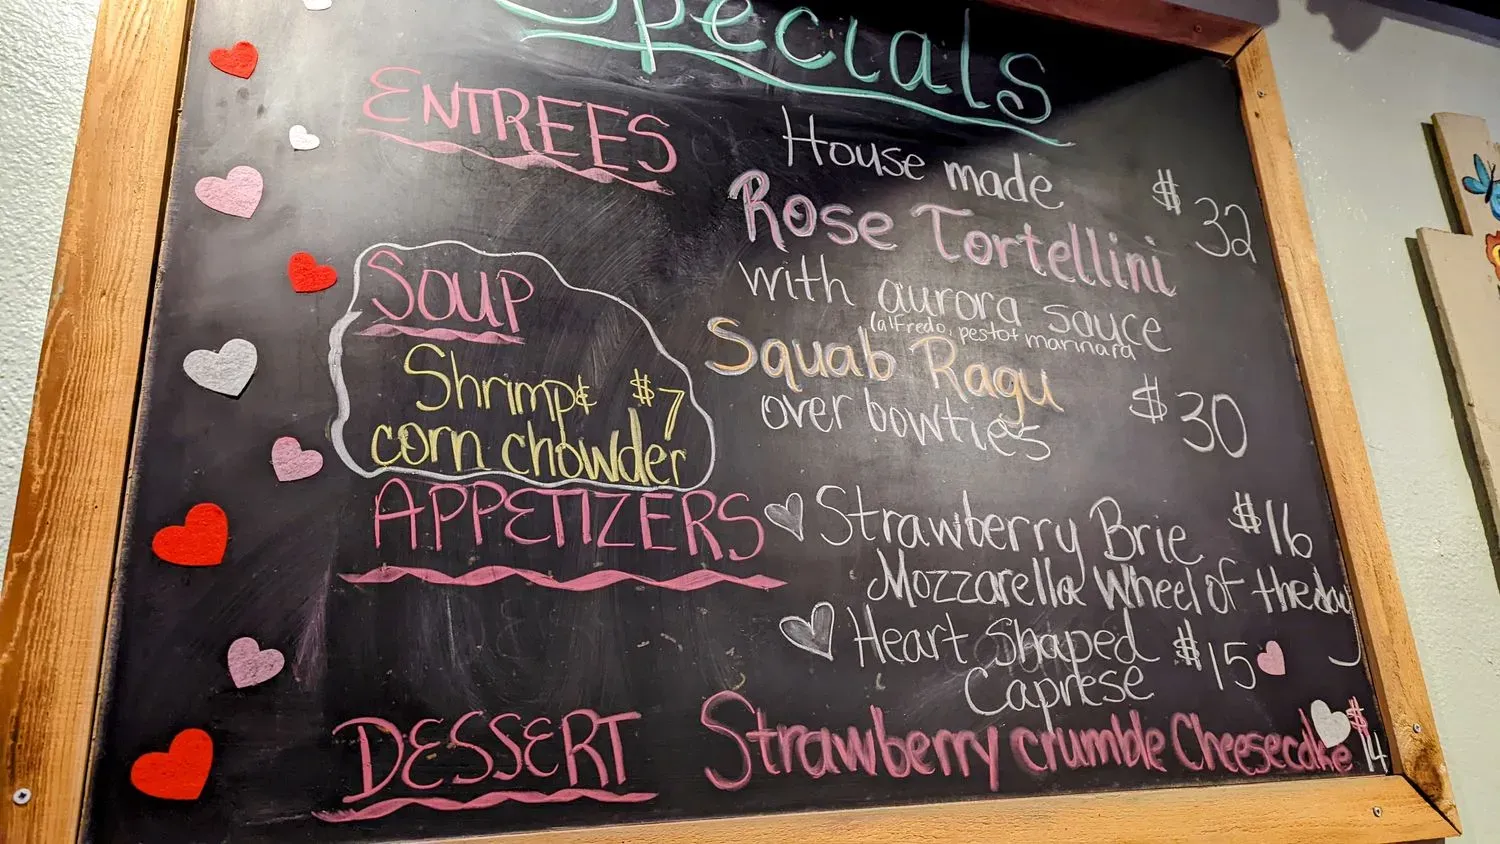 Specials
ENTREES
House made
$32
Rose Tortellini
with aurora sauce
(alfredo, pesto + marinara
Squab Ragu
over bowties
$30
SOUP
Shrimp &
$7
corn chowder
APPETIZERS
Strawberry Brie
$16
Mozzarella Wheel of the day
Heart Shaped
$15
Caprese
DESSERT
Strawberry crumble Cheesecake
$14